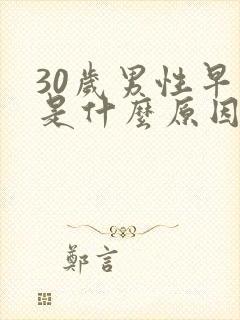 30歲男性早
是什麼原因
鄭言